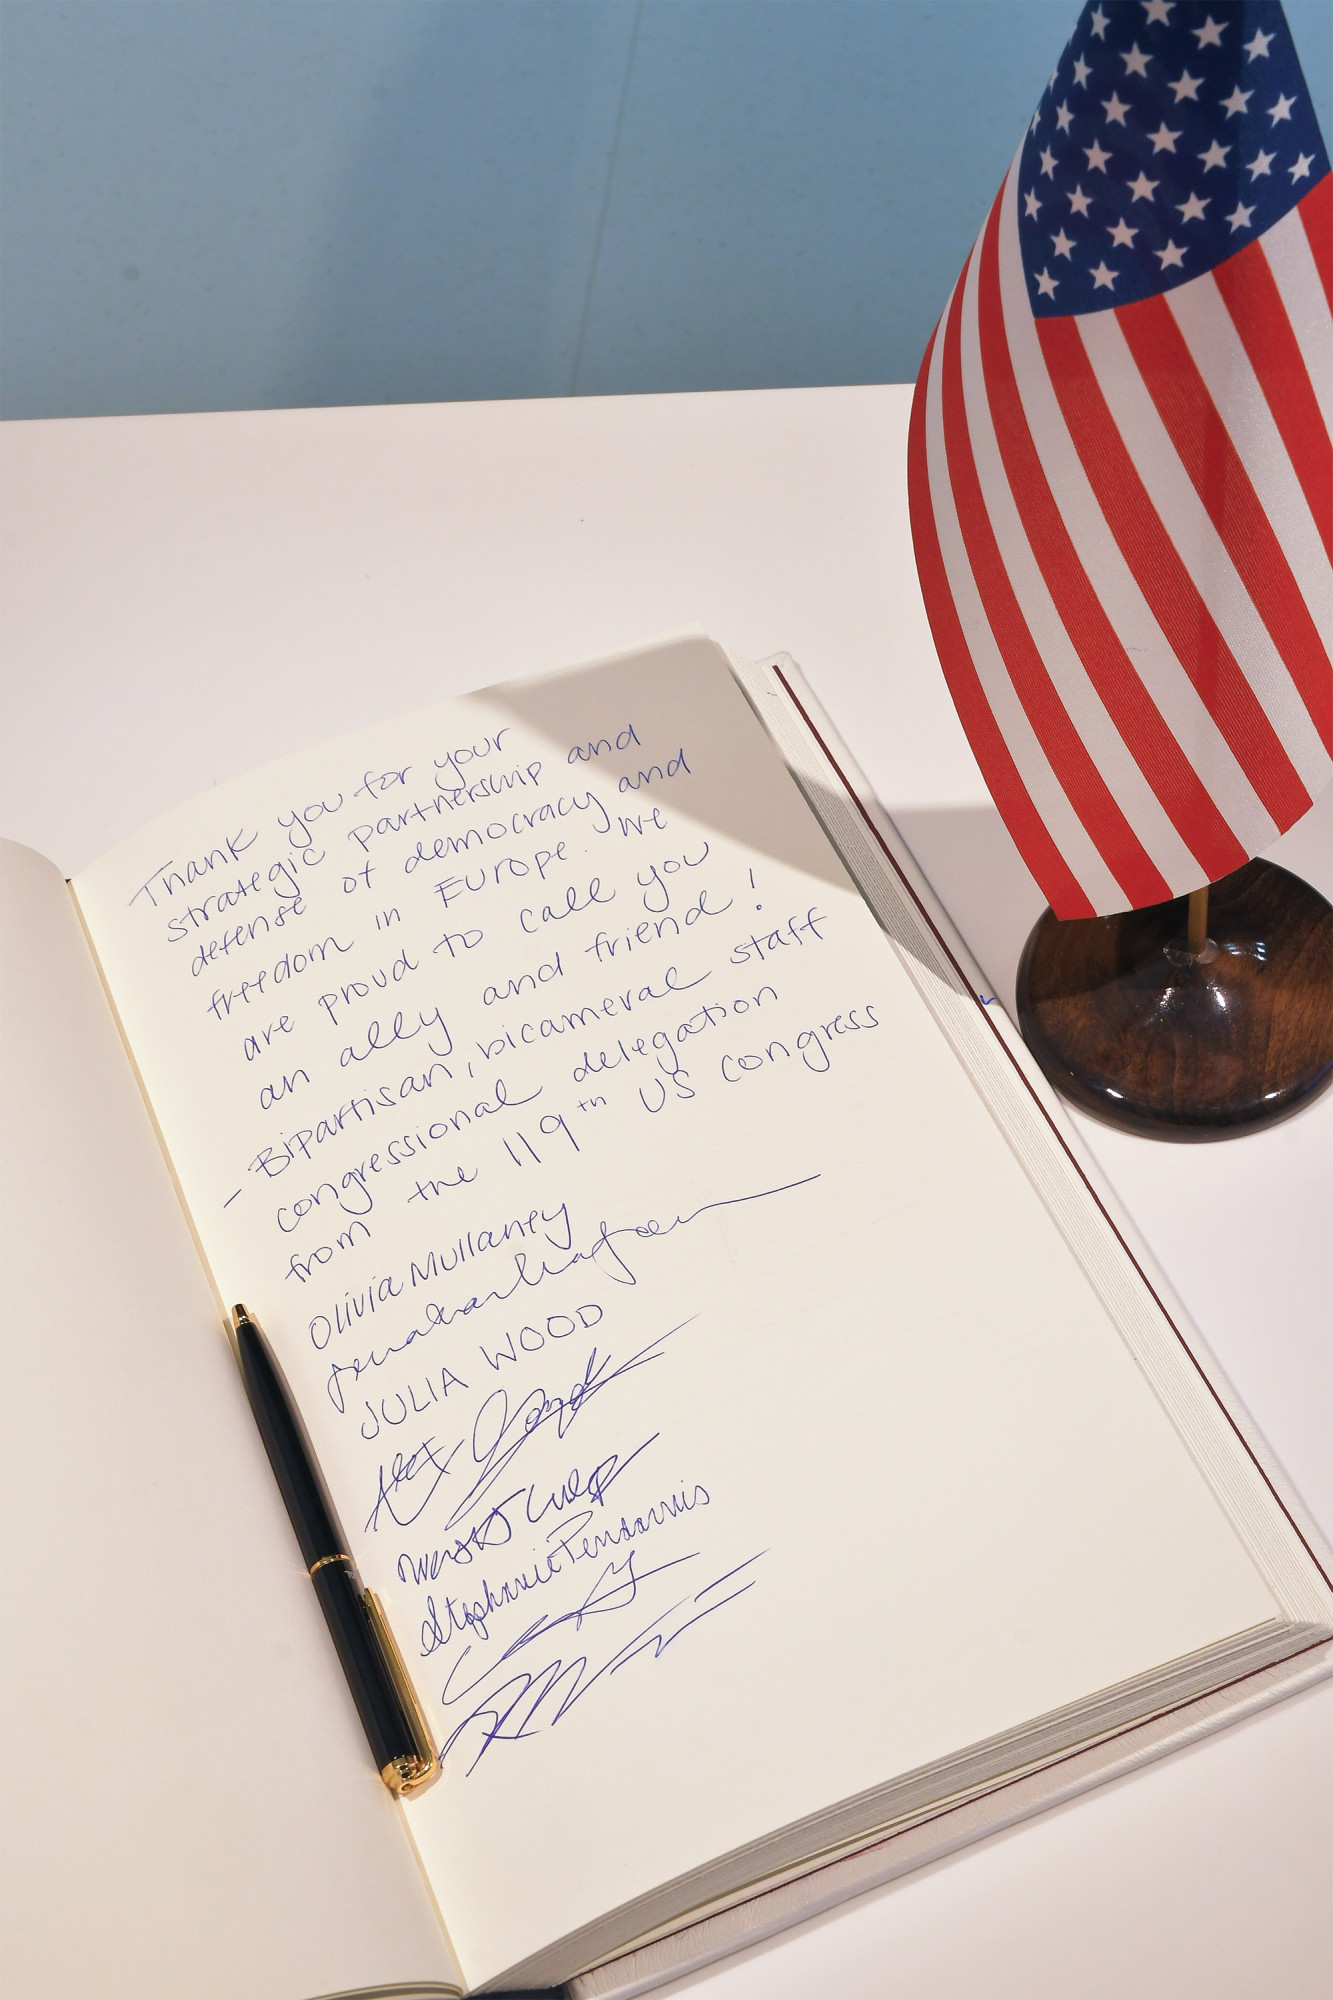 Thank you for your
strategic partnership and
defense of democracy and
freedom in Europe. We
are proud to call you
an ally and friend!
- Bipartisan, bicameral staff
congressional delegation
from the 119th US Congress
Olivia Mullaney
JULIA WOOD
Alex
Culp
Stephanie Pendarvis